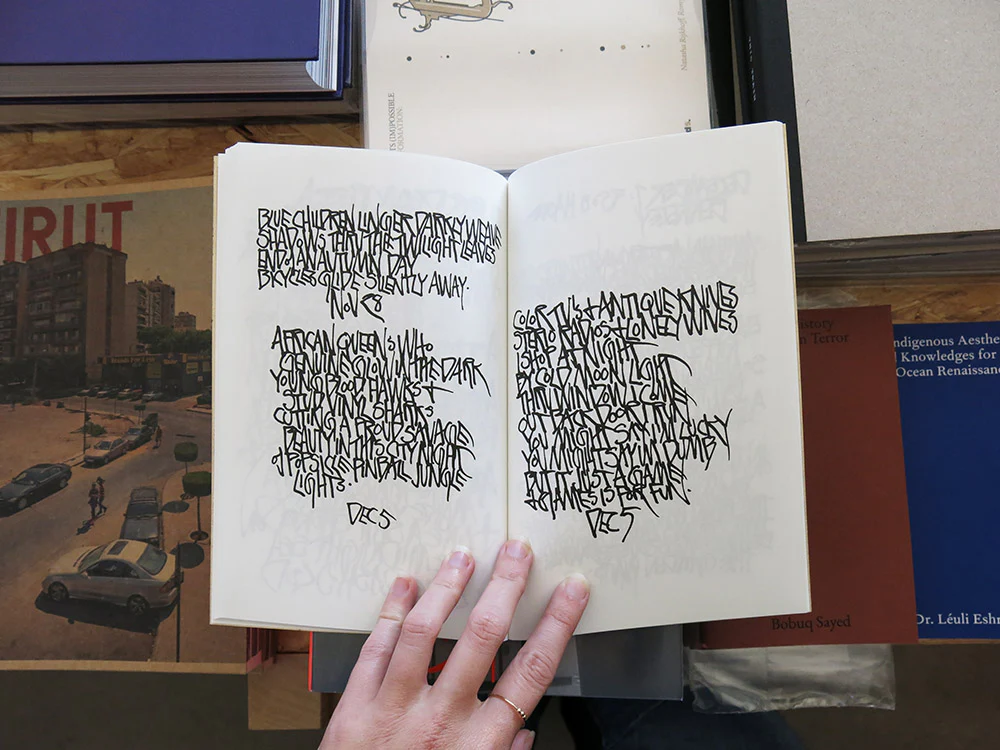 BLUE CHILDREN LINGER DARKLY WEAVE
SHADOWS THRU THE TWILIGHT LEAVES
END. AN AUTUMN DAY
BICYCLES GLIDE SILENTLY AWAY.
NOV 28
AFRICAN QUEEN'S WHO
GENUINE GLOW IN THE DARK
YOUNG BLOOD HAWKS +
CUTTING VINYL SHARKS
A PROUD SAVAGE
BEAUTY IN THIS CITY NIGHT
A POPSICLE PINBALL JUNGLE
LIGHTS.
DEC 5
COLOR TV'S + ANTIQUE KNIVES
STEREO RADIOS + LONELY WIVES
I SHOP AT NIGHT
BY COLD MOON LIGHT
THRU WINDOW I COME
OUT BACK DOOR I RUN
YOU MIGHT SAY I'M LUCKY
YOU MIGHT SAY I'M DUMB
BUT IT'S JUST A GAME
+ GAMES IS FOR FUN.
DEC 5
IRUT
(IM)POSSIBLE
FORMATION:
istory
n Terror
Bobuq Sayed
ndigenous Aesthe
Knowledges for
Ocean Renaissanc
Dr. Léuli Eshr